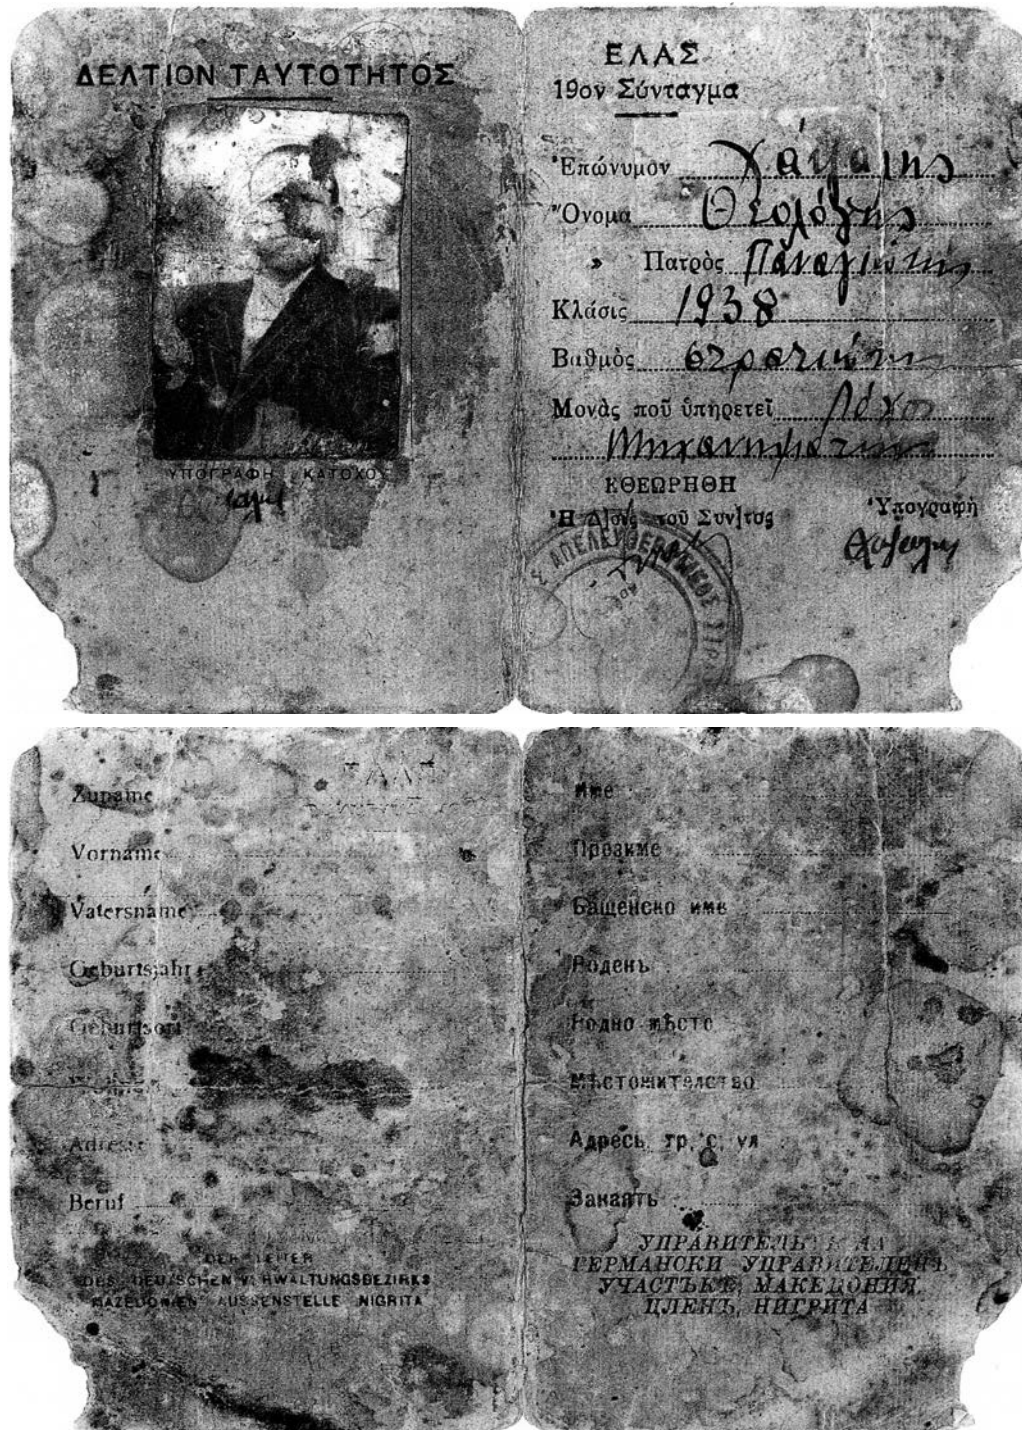 ΔΕΛΤΙΟΝ ΤΑΥΤΟΤΗΤΟΣ
ΥΠΟΓΡΑΦΗ ΚΑΤΟΧΟΥ
ΕΛΑΣ
19ον Σύνταγμα
Ἐπώνυμον
Ὄνομα Θεολόγης
» Πατρὸς Παναγιώτης
Κλάσις 1938
Βαθμὸς στρατιώτης
Μονὰς ποῦ ὑπηρετεῖ Λόχος
ΕΘΕΩΡΗΘΗ
Ἡ Δ]σις τοῦ Συν]τος Ὑπογραφὴ
ΑΠΕΛΕΥΘΕΡΩΤΙΚΟΣ ΣΤΡ
Zuname
Vorname
Vatersname
Geburtsjahr
Geburtsort
Adresse
Beruf
DER LEITER
DES DEUTSCHEN VERWALTUNGSBEZIRKS
MAZEDONIEN AUSSENSTELLE NIGRITA
Име
Презиме
Бащенско име
Роденъ
Родно мѣсто
Мѣстожителство
Адресъ гр. с. ул
Занаятъ
УПРАВИТЕЛЬ НА
ГЕРМАНСКИ УПРАВИТЕЛЕНЪ
УЧАСТЪКЪ, МАКЕДОНИЯ,
ЦЛЕНЪ, НИГРИТА